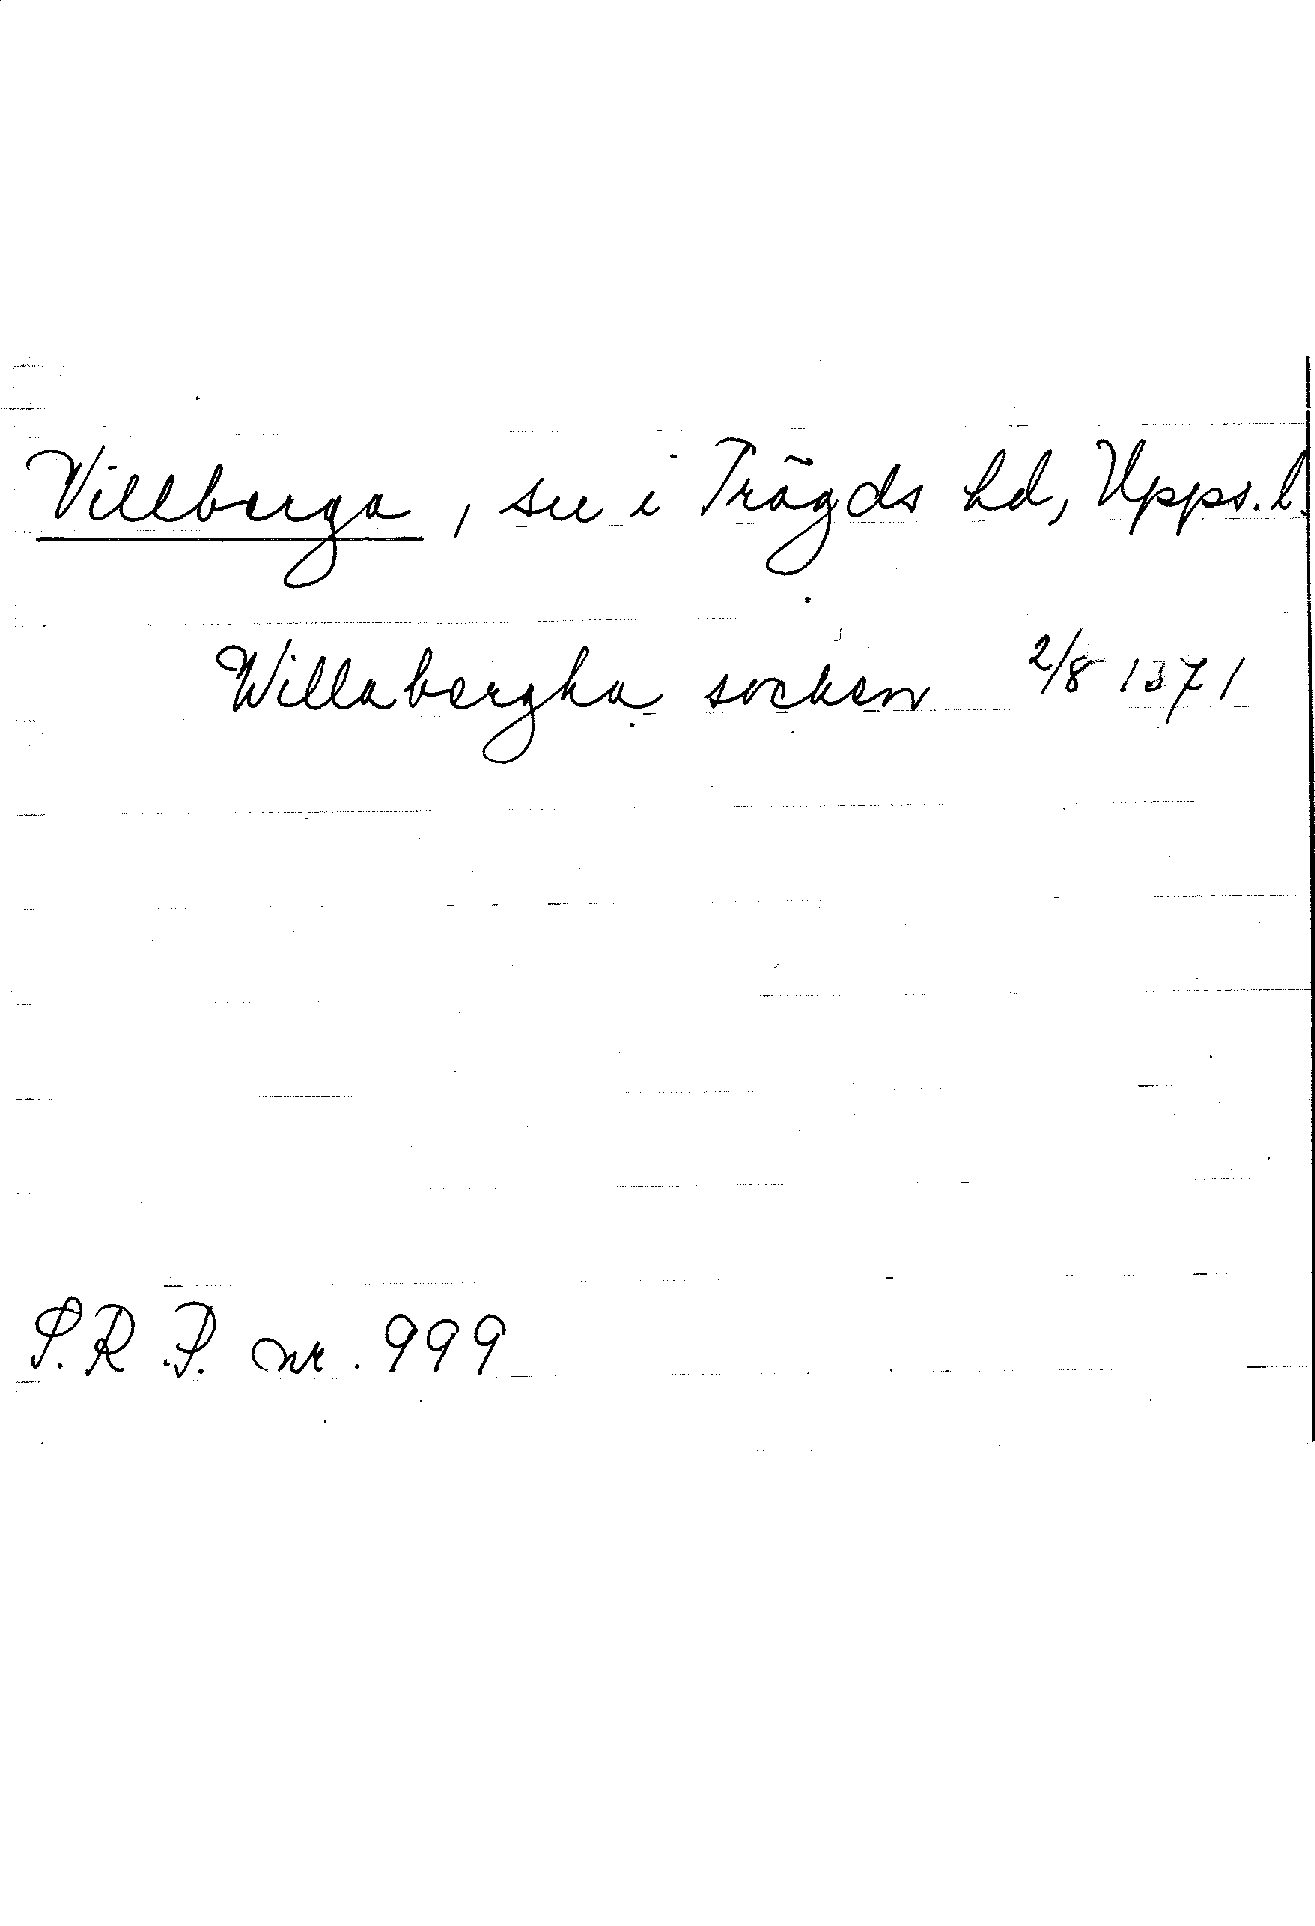 Villberga, sn i Trögds hd, Upps. l.
Willabergha socken 2/8 1371
S.R.P. nr. 999